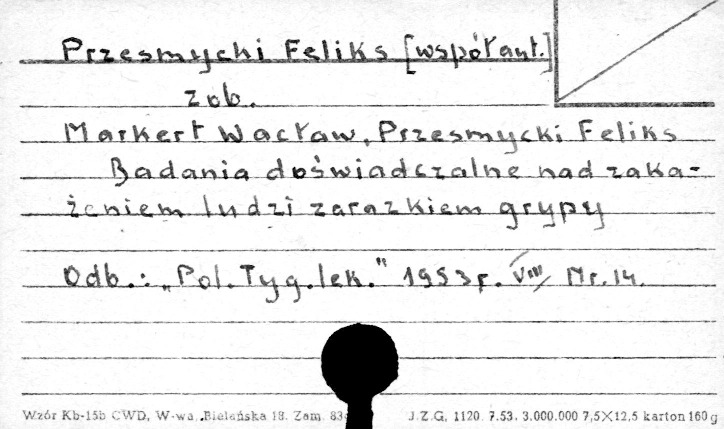 Przesmycki Feliks [współaut.]
zob.
Markert Wacław, Przesmycki Feliks
Badania doświadczalne nad zaka-
żeniem ludzi zarazkiem grypy
Odb.: „Pol. Tyg. lek." 1953 r. VIII/ Nr. 14.
Wzór Kb-15b CWD, W-wa, Bieleńska 18. Zam. J.Z.G. 1120. 7.53. 3.000.000 7,5×12,5 karton 160 g